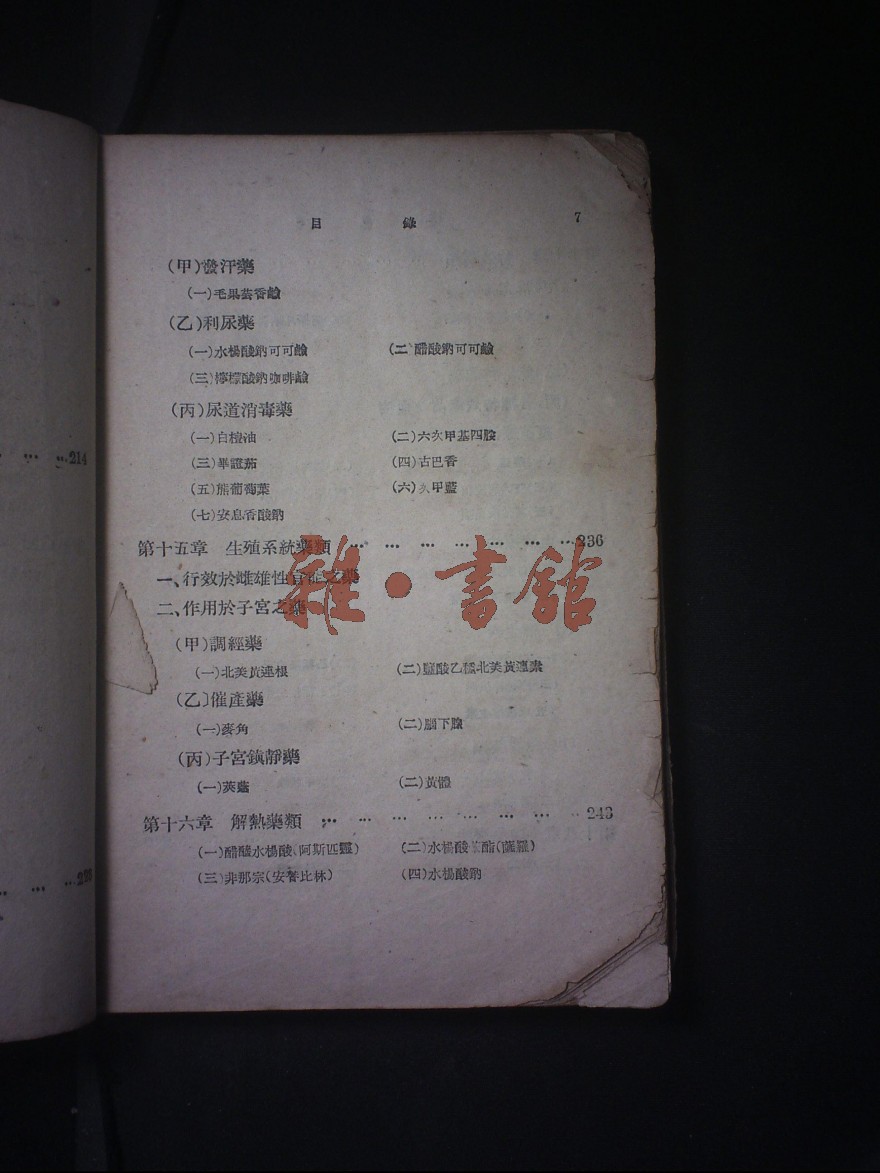 目 錄 7
(甲)發汗藥
(一)毛果芸香鹼
(乙)利尿藥
(一)水楊酸鈉可可鹼 (二)醋酸鈉可可鹼
(三)檸檬酸鈉咖啡鹼
(丙)尿道消毒藥
(一)白檀油 (二)六次甲基四胺
(三)蓽證茄 (四)古巴香
(五)熊葡萄葉 (六)次甲藍
(七)安息香酸鈉
第十五章 生殖系統藥類 … … … … … … …236
一、行效於雌雄性官能之藥
二、作用於子宮之藥
(甲)調經藥
(一)北美黃連根 (二)鹽酸乙種北美黃連素
(乙)催產藥
(一)麥角 (二)腦下腺
(丙)子宮鎮靜藥
(一)莢蒾 (二)黃體
第十六章 解熱藥類 … … … … … … … …243
(一)醋醯水楊酸(阿斯匹靈) (二)水楊酸 酯(薩羅)
(三)非那宗(安替比林) (四)水楊酸鈉
… … …214
雜·書館